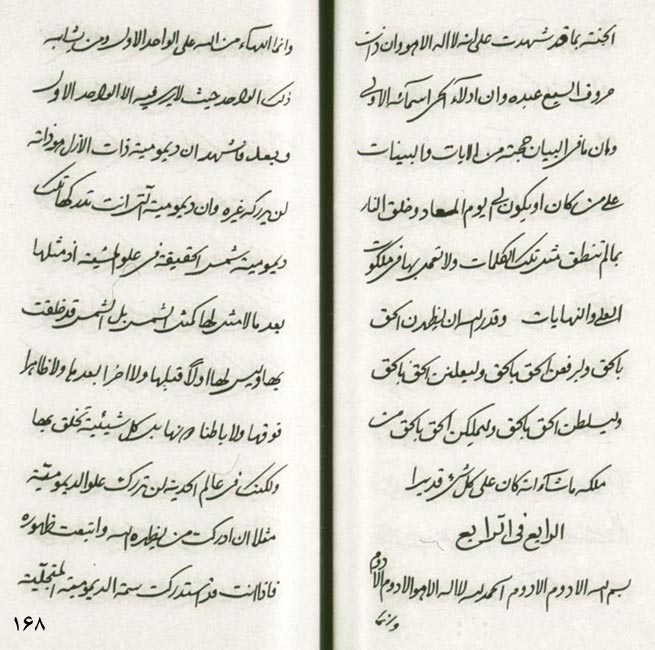 الجنة بما قد شهدت على انه لا اله الا هو وان ذات
حروف السبع عبده وان ادلاء الحى اسمائه الاولى
وان ما فى البيان حجته من الايات والبينات
على من كان او يكون الى يوم المعاد وخلق النار
بما لم تنطق بمثل تلك الكلمات ولا تشهد بها فى ملكوت
العلى والنهايات وقدر الله ان يظهرن الحق
بالحق وليرفعن الحق بالحق وليعلنن الحق بالحق
وليسلطن الحق بالحق وليملكن الحق بالحق من
ملكه ما شاء انه كان على كل شىء قديرا
الرابع فى الرابع
بسم الله الادوم الادوم الحمد لله لا اله الا هو الادوم الادوم
وانما
وانما البهاء من الله على الواحد الاول ومن يشابه
ذلك الواحد حيث لا يرى فيه الا الواحد الاول
وبعد فاشهد ان ديمومية ذات الازل هو ذاته
لن يدركه غيره وان ديمومية التى انت تدركها تلك
ديمومية شمس الحقيقة فى علو المشية اذ مثلها
بعد ما لا مثل لها كمثل الشمس بل الشمس قد خلقت
بها وليس لها اولا قبلها ولا اخرا بعدها ولا ظاهرا
فوقها ولا باطنا دونها بل كل شيئية تخلق بها
ولكنك فى عالم الحدية لن تدرك علو الديمومية
مثلا ان ادركت من يظهره الله واتبعت ظهوره
فاذا انت قد استدركت سمة الديمومية المتجلية
۱۶۸